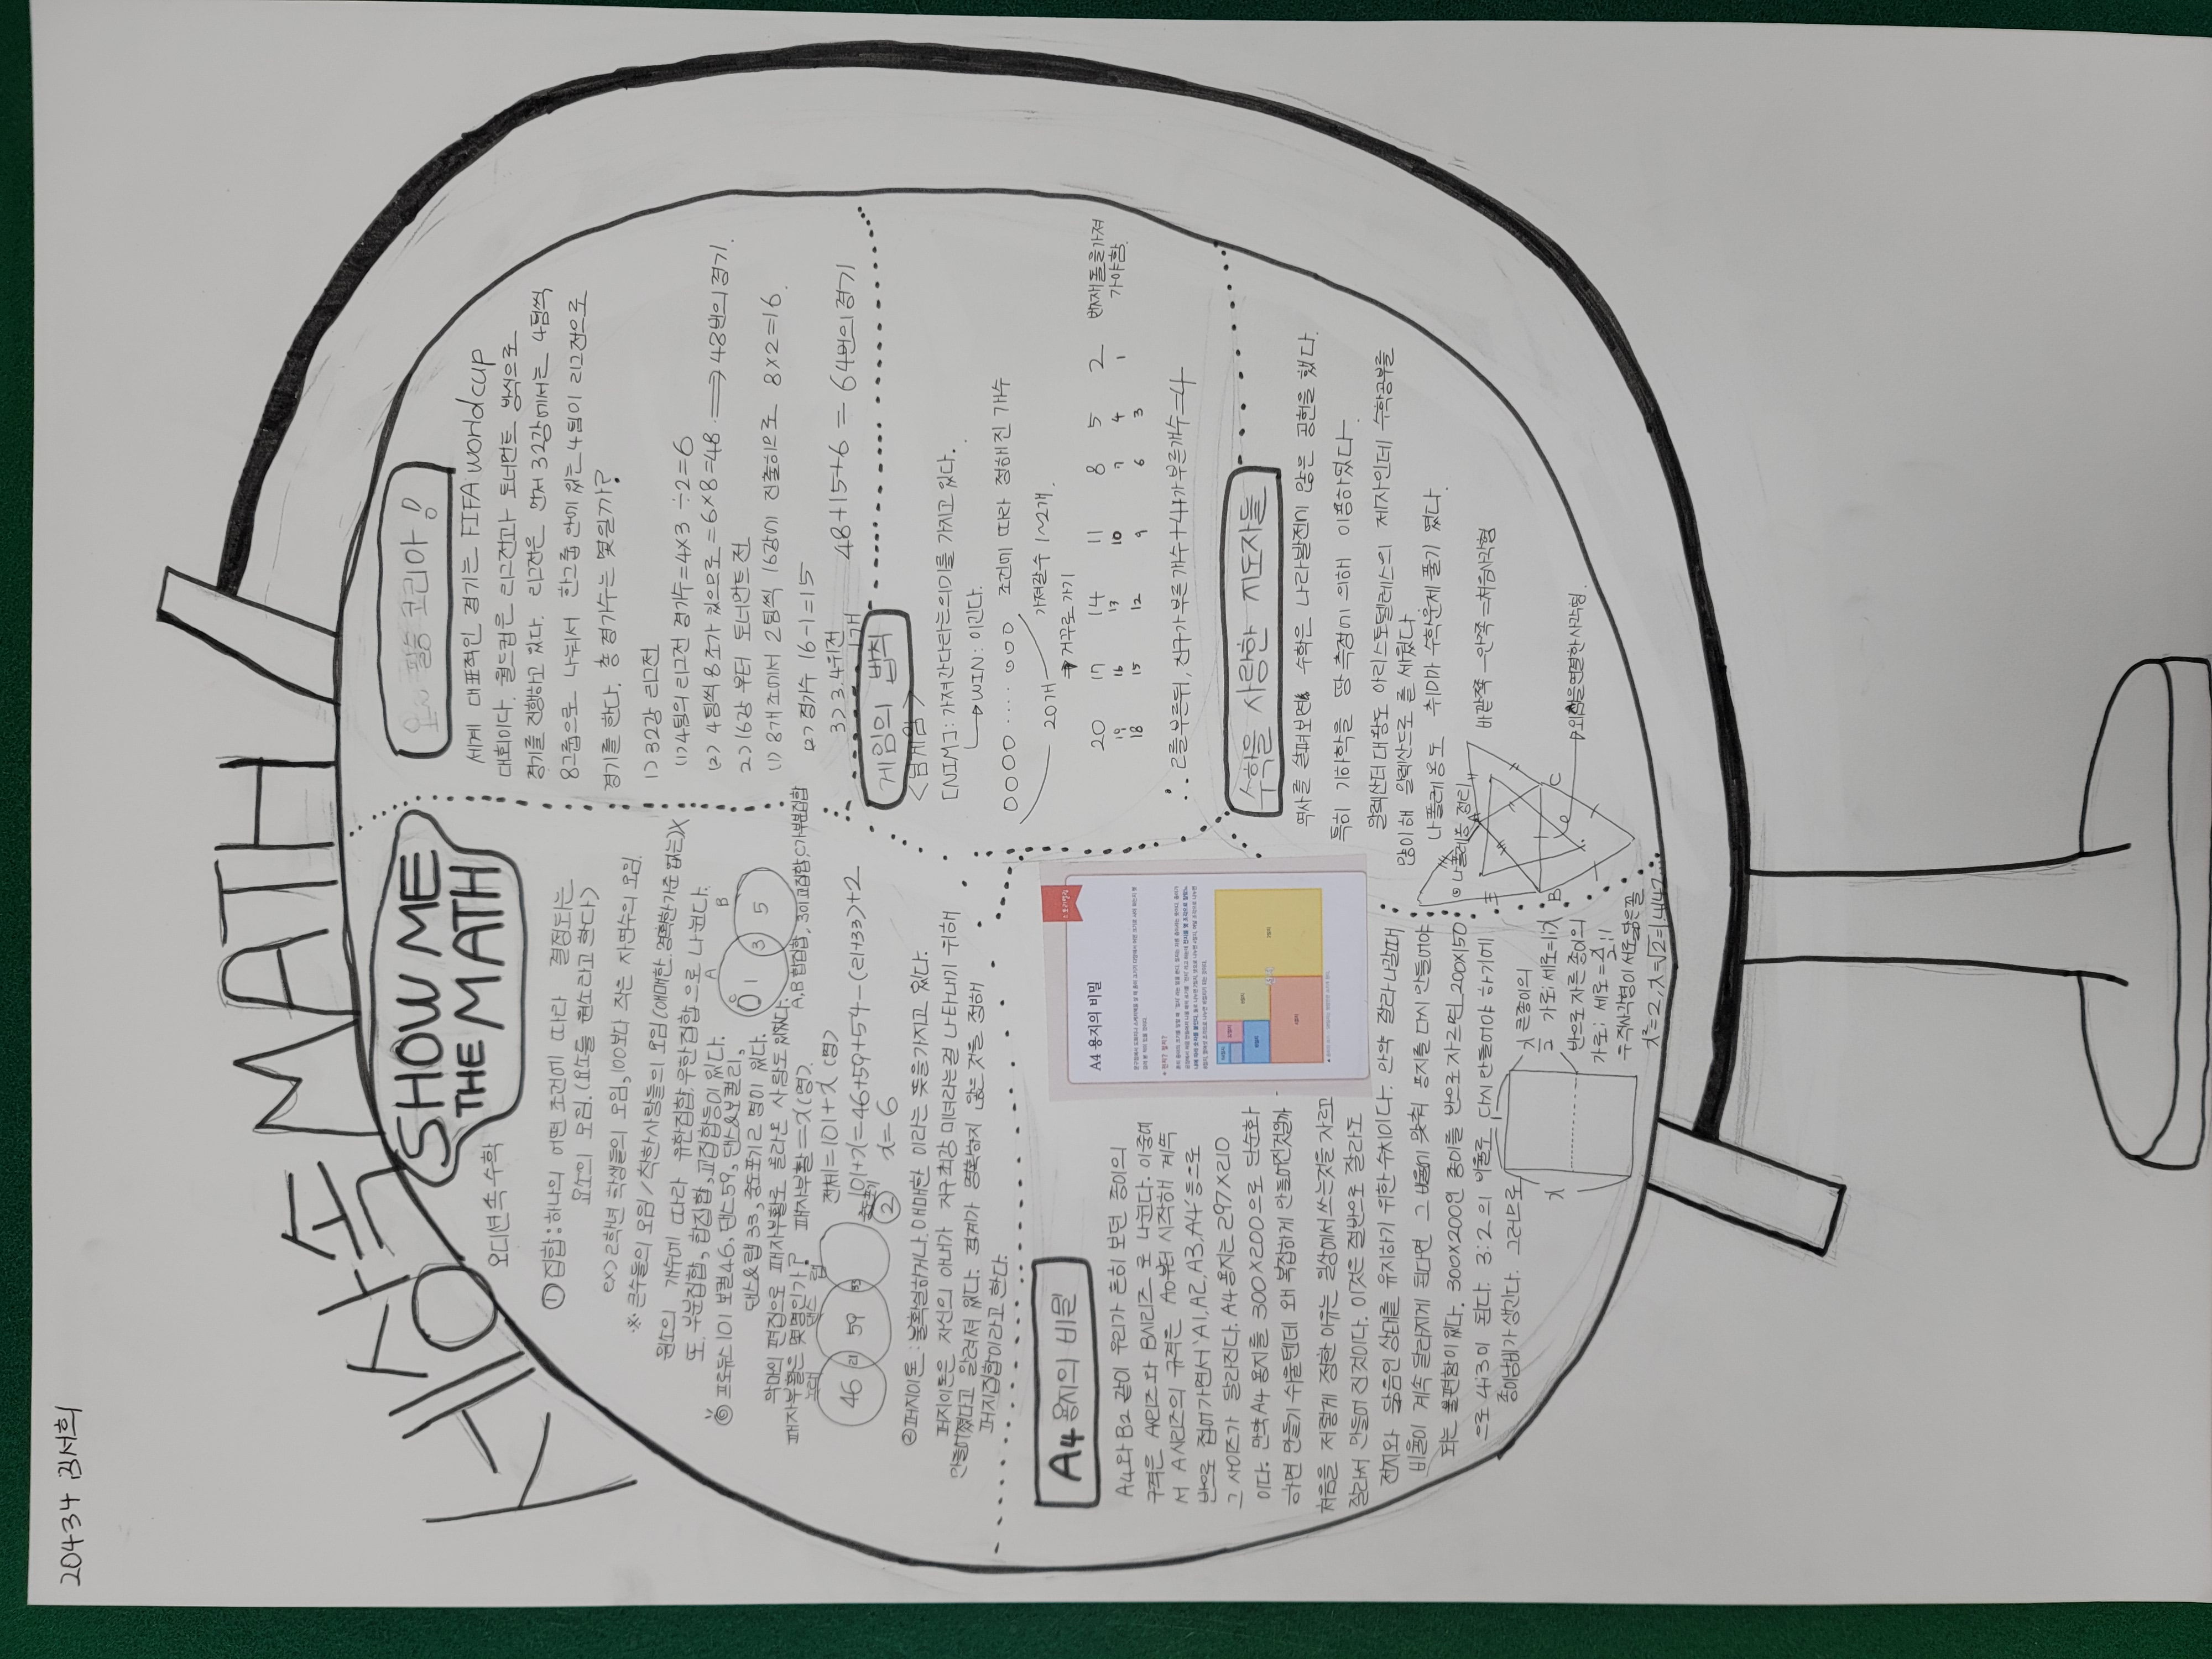 20434 김서희
생활 속 MATH
SHOW ME
THE MATH
오디션 속 수학
① 집합: 하나의 어떤 조건에 따라 결정되는
요소의 모임. (요소를 원소라고 한다)
ex> 2학년 학생들의 모임, 100보다 작은 자연수의 모임.
※ 큰수들의 모임 / 착한사람들의 모임 (애매한. 명확한 기준 없는) X
원소의 개수에 따라 유한집합, 무한집합으로 나뉜다.
또. 부분집합, 합집합, 교집합등이 있다.
A B
1 3 5
A,B 합집합, 3이 교집합, 0 부분집합
프로듀스 101 보컬 46, 댄스 59, 댄스&보컬 21,
댄스&랩 33, 중도포기 2 명이 있다.
악마의 편집으로 패자부활로 올라온 사람도 있었다.
패자부활은 몇명인가? 패자부활 = x(명).
전체 = 101+x (명)
노래 댄스 랩
46 21 59 33
중도포기 ②
101+x = 46+59+54-(21+33)+2
x = 6
② 퍼지이론: 불확실하거나, 애매한 이라는 뜻을 가지고 있다.
퍼지이론은 자신의 아내가 지구최강 미녀라는걸 나타내기 위해
만들어졌다고 알려져 있다. 경계가 명확하지 않은 것을 정해
퍼지집합이라고 한다.
A4 용지의 비밀
A4와 B2 같이 우리가 흔히 보던 종이의
규격은 A시리즈와 B시리즈로 나뉜다. 이중에
서 A시리즈의 규격은 A0부터 시작해 계속
반으로 접어가면서 A1, A2, A3, A4 등으로
그 사이즈가 달라진다. A4 용지는 297X210
이다. 만약 A4 용지를 300X200으로 단순화
하면 만들기 쉬울텐데 왜 복잡하게 만들어진것일까.
처음을 저렇게 정한 이유는 일상에서 쓰는것을 자르고
잘라서 만들어 진것이다. 이것은 절반으로 잘라도
전지와 닮음인 상태를 유지하기 위한 수치이다. 만약 잘라 나갈때
비율이 계속 달라지게 된다면 그 비율에 맞춰 용지를 다시 만들어야
되는 불편함이 있다. 300X200인 종이를 반으로 자르면 200X150
으로 4:3이 된다. 3:2의 비율로 다시 만들어야 하기에
종이낭비가 생긴다. 그러므로
A4 용지의 비밀
x
x 큰종이의
가로: 세로 = 1:x
반으로 자른 종이의
가로: 세로 = x/2:1
두 직사각형이 서로 닮은꼴
x²=2, x=√2=1.4142...
오~ 필승 코리아!
세계 대표적인 경기는 FIFA world cup
대회이다. 월드컵은 리그전과 토너먼트 방식으로
경기를 진행하고 있다. 리그전은 먼저 32강에서는 4팀씩
8그룹으로 나눠서 한그룹 안에 있는 4팀이 리그전으로
경기를 한다. 총 경기수는 몇일까?
1) 32강 리그전
(1) 4팀의 리그전 경기수 = 4X3÷2=6
(2) 4팀씩 8조가 있으므로 = 6X8=48. ⟹ 48번의 경기.
2) 16강 부터 토너먼트전
(1) 8개 조에서 2팀씩 16강에 진출하므로 8X2=16.
(2) 경기수 16-1=15
3) 3.4위전
1개
48+15+6 = 64번의 경기
게임의 법칙
<님게임>
[NIM]: 가져간다라는의미를 가지고 있다.
→ WIN: 이긴다.
0000 .... 000 조건에 따라 정해진 개수
20개 가져갈수 1~2개.
거꾸로 가기
20 17 14 11 8 5 2 번째돌을가져
19 16 13 10 7 4 1 가야함.
18 15 12 9 6 3
∴ 2를부른뒤, 친구가부른개수+내가부른개수=4
수학을 사랑한 지도자들
역사를 살펴보면 수학은 나라발전에 많은 공헌을 했다.
특히 기하학을 땅 측정에 의해 이용하였다.
알렉산더 대왕도 아리스토텔레스의 제자인데 수학공부를
많이 해 알렉산드로를 세웠다.
나폴레옹도 취미가 수학문제 풀기 였다.
◎ 나폴레옹 정리
바깥쪽 - 안쪽 = 처음삼각형
A
B
C
E